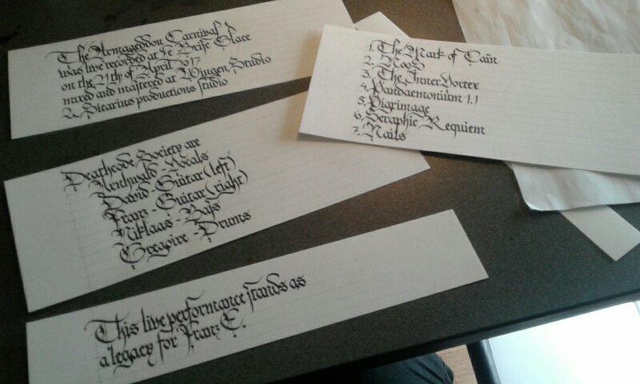 The Armageddon Carnival
was live recorded at Le Brise Glace
on the 21th of April 2017
mixed and mastered at Wingen Studio
& Sicarius productions studio
1. The Mark of Cain
2.
3. The Inner Vortex
4. Pandaemonium 1.1
5. Pilgrimage
6. Seraphic Requiem
7. Nails
Deathcode Society are
Arnhwald - Vocals
David - Guitar (left)
Franz - Guitar (right)
Niklaas - Bass
Gregoire - Drums
This live performance stands as
a legacy for Franz E.